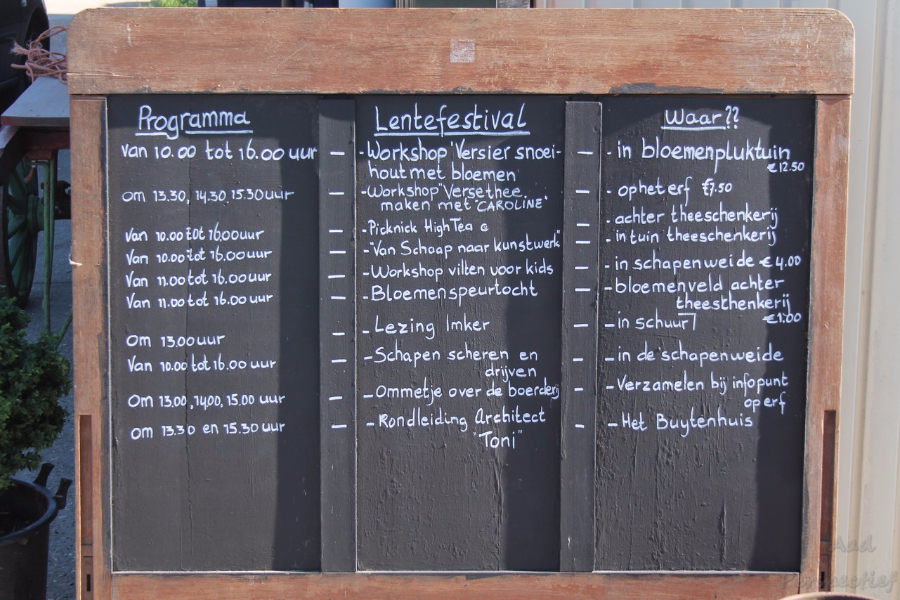 Programma
Van 10.00 tot 16.00 uur -
om 13.30, 14.30, 15.30 uur -
Van 10.00 tot 16.00 uur -
Van 10.00 tot 16.00 uur -
Van 11.00 tot 16.00 uur -
Van 11.00 tot 16.00 uur -
Om 13.00 uur -
Van 10.00 tot 16.00 uur -
Om 13.00, 14.00, 15.00 uur -
om 13.30 en 15.30 uur -
Lentefestival
- Workshop "Versier snoei-
hout met bloemen -
- Workshop "Verse thee
maken met "CAROLINE" -
- Picknick High Tea -
- "Van Schaap naar kunstwerk" -
- Workshop vilten voor kids -
- Bloemenspeurtocht -
- Lezing Imker -
- Schapen scheren en
drijven -
- Ommetje over de boerderij -
- Rondleiding Architect
"Toni" -
Waar??
- in bloemenpluktuin
€12.50
- op het erf €7.50
- achter theeschenkerij
- in tuin theeschenkerij
- in schapenweide €4.00
- bloemenveld achter
theesthenkerij
€1.00
- in schuur
- in de schapenweide
- Verzamelen bij infopunt
op erf
- Het Buytenhuis
Aad